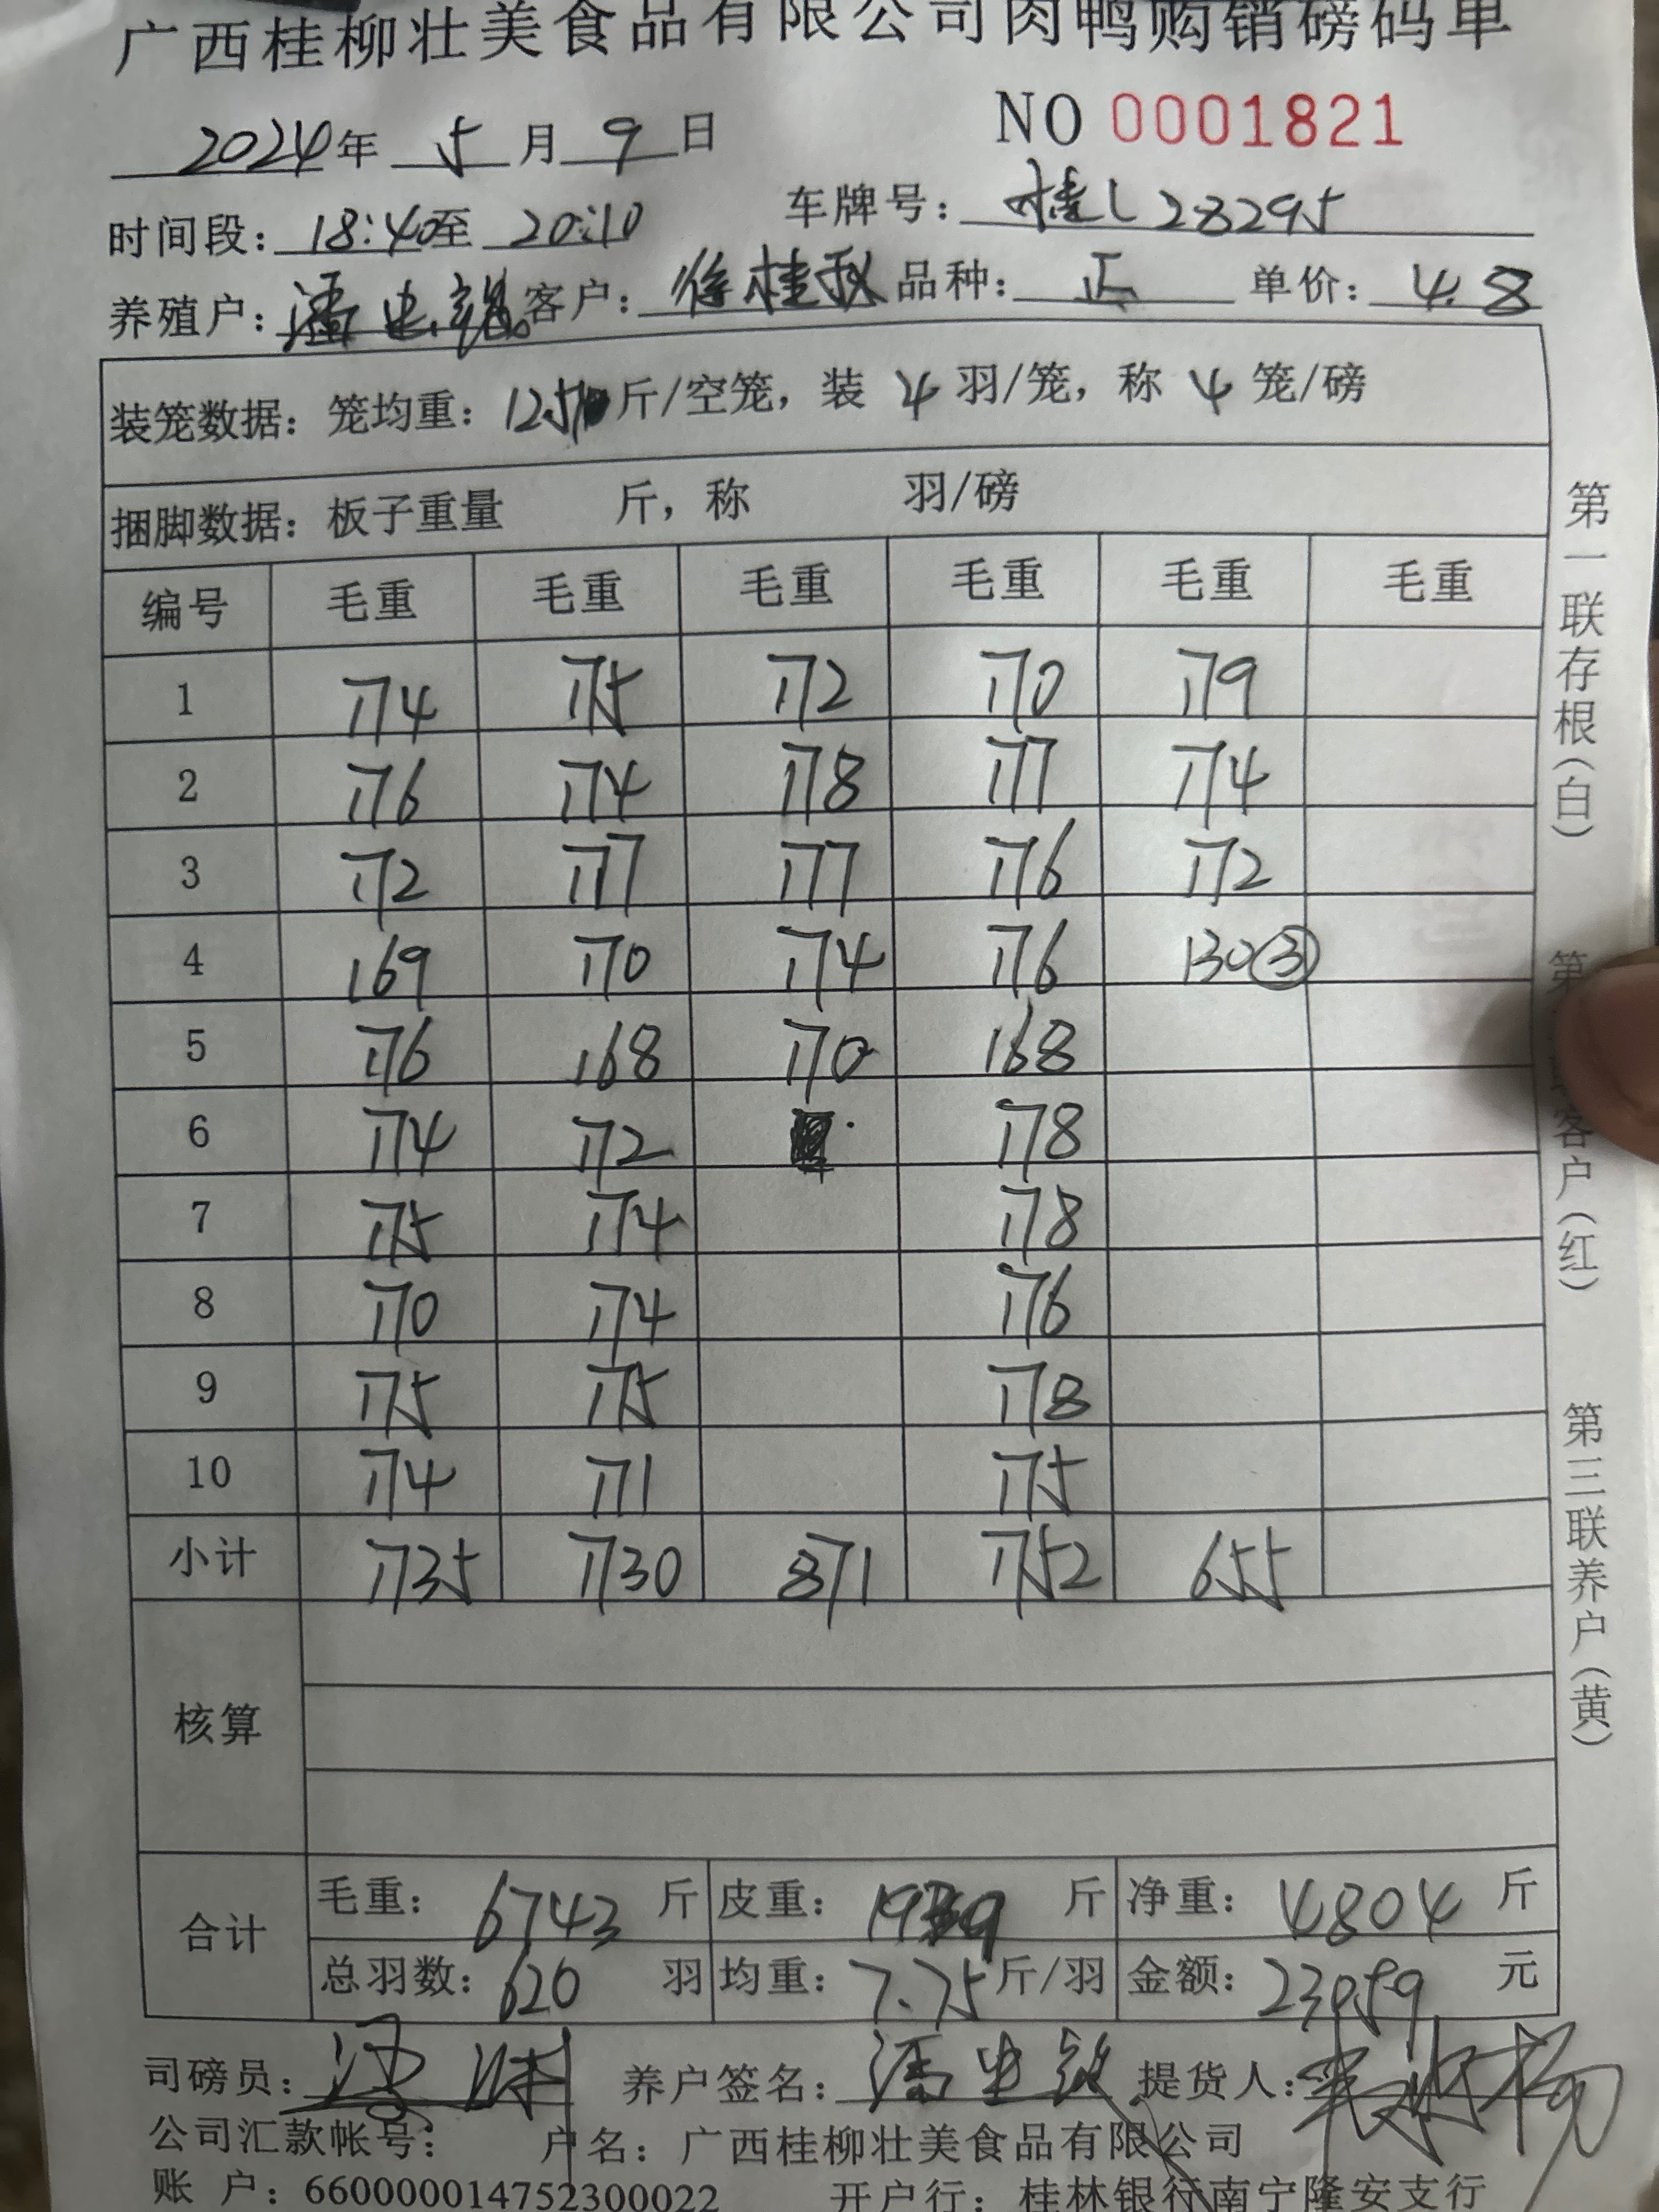 广西桂柳壮美食品有限公司肉鸭购销磅码单
NO 0001821
2024年 5 月 9 日
时间段: 18:40至 20:10 车牌号: 桂L28295
养殖户: 潘 客户: 徐桂秋 品种: 正 单价: 4.8
装笼数据: 笼均重: 斤/空笼, 装 4 羽/笼, 称 4 笼/磅
捆脚数据: 板子重量 斤, 称 羽/磅
编号 毛重 毛重 毛重 毛重 毛重 毛重
1 174 175 172 170 179
2 176 174 178 177 174
3 172 177 177 176 172
4 169 170 174 176 130③
5 176 168 170 168
6 174 172 178
7 175 174 178
8 170 174 176
9 175 175 178
10 174 171 175
小计 1735 1730 871 1752 655
核算
合计
毛重: 6743 斤 皮重: 1939 斤 净重: 4804 斤
总羽数: 620 羽 均重: 7.75 斤/羽 金额: 23059 元
司磅员: 养户签名: 潘 提货人:
公司汇款帐号: 户名: 广西桂柳壮美食品有限公司
账 户: 660000014752300022 开户行: 桂林银行南宁隆安支行
第一联存根(白)
第 客户(红)
第三联养户(黄)